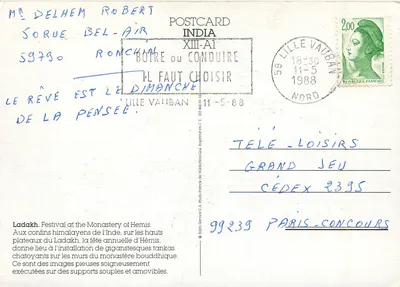 Mr DELHEM ROBERT
50RUE BEL-AIR
59790 RONCHIN
LE RÊVE EST LE DIMANCHE
DE LA PENSÉE.
POSTCARD
INDIA
XIII-A1
BOIRE ou CONDUIRE
IL FAUT CHOISIR
LILLE VAUBAN 11-5-88
59 LILLE VAUBAN
18-30
11-5
1988
NORD
2,00
TÉLÉ-LOISIRS
GRAND JEU
CÉDEX 2395
99239 PARIS-CONCOURS
Ladakh. Festival at the Monastery of Hemis.
Aux confins himalayens de l'Inde, sur les hauts
plateaux du Ladakh, la fête annuelle d'Hémis,
donne lieu à l'installation de gigantesques tankas
chatoyants sur les murs du monastère bouddhique.
Ce sont des images pieuses soigneusement
exécutées sur des supports souples et amovibles.